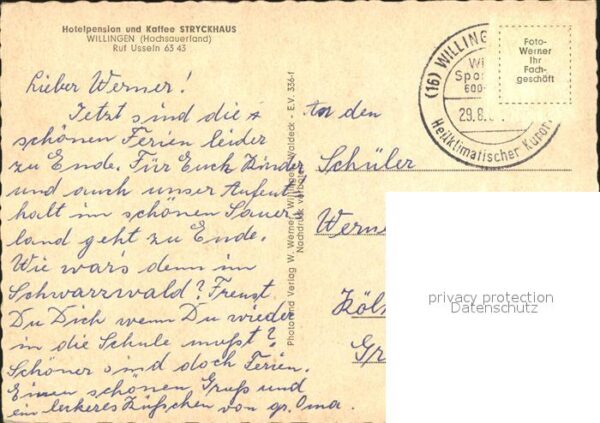 Hotelpension und Kaffee STRYCKHAUS
WILLINGEN (Hochsauerland)
Ruf Usseln 63 43
Lieber Werner!
Jetzt sind die
schönen Ferien leider
zu Ende. Für Euch Kinder
und auch unser Aufent
halt im schönen Sauer
land geht zu Ende.
Wie war's denn im
Schwarzwald? Freust
Du Dich wenn Du wieder
in die Schule mußt?
Schöner sind doch Ferien.
Einen schönen Gruß und
ein leckeres Küßchen von gr. Oma.
Photorend Verlag W. Werner, Willingen-Waldeck - E.V. 336-f
Nachdruck verboten
(16) WILLING
600
29.8.
Heilklimatischer Kurort
Foto-
Werner
Ihr
Fach-
geschäft
An den
Schüler
Werne
Köln
privacy protection
Datenschutz